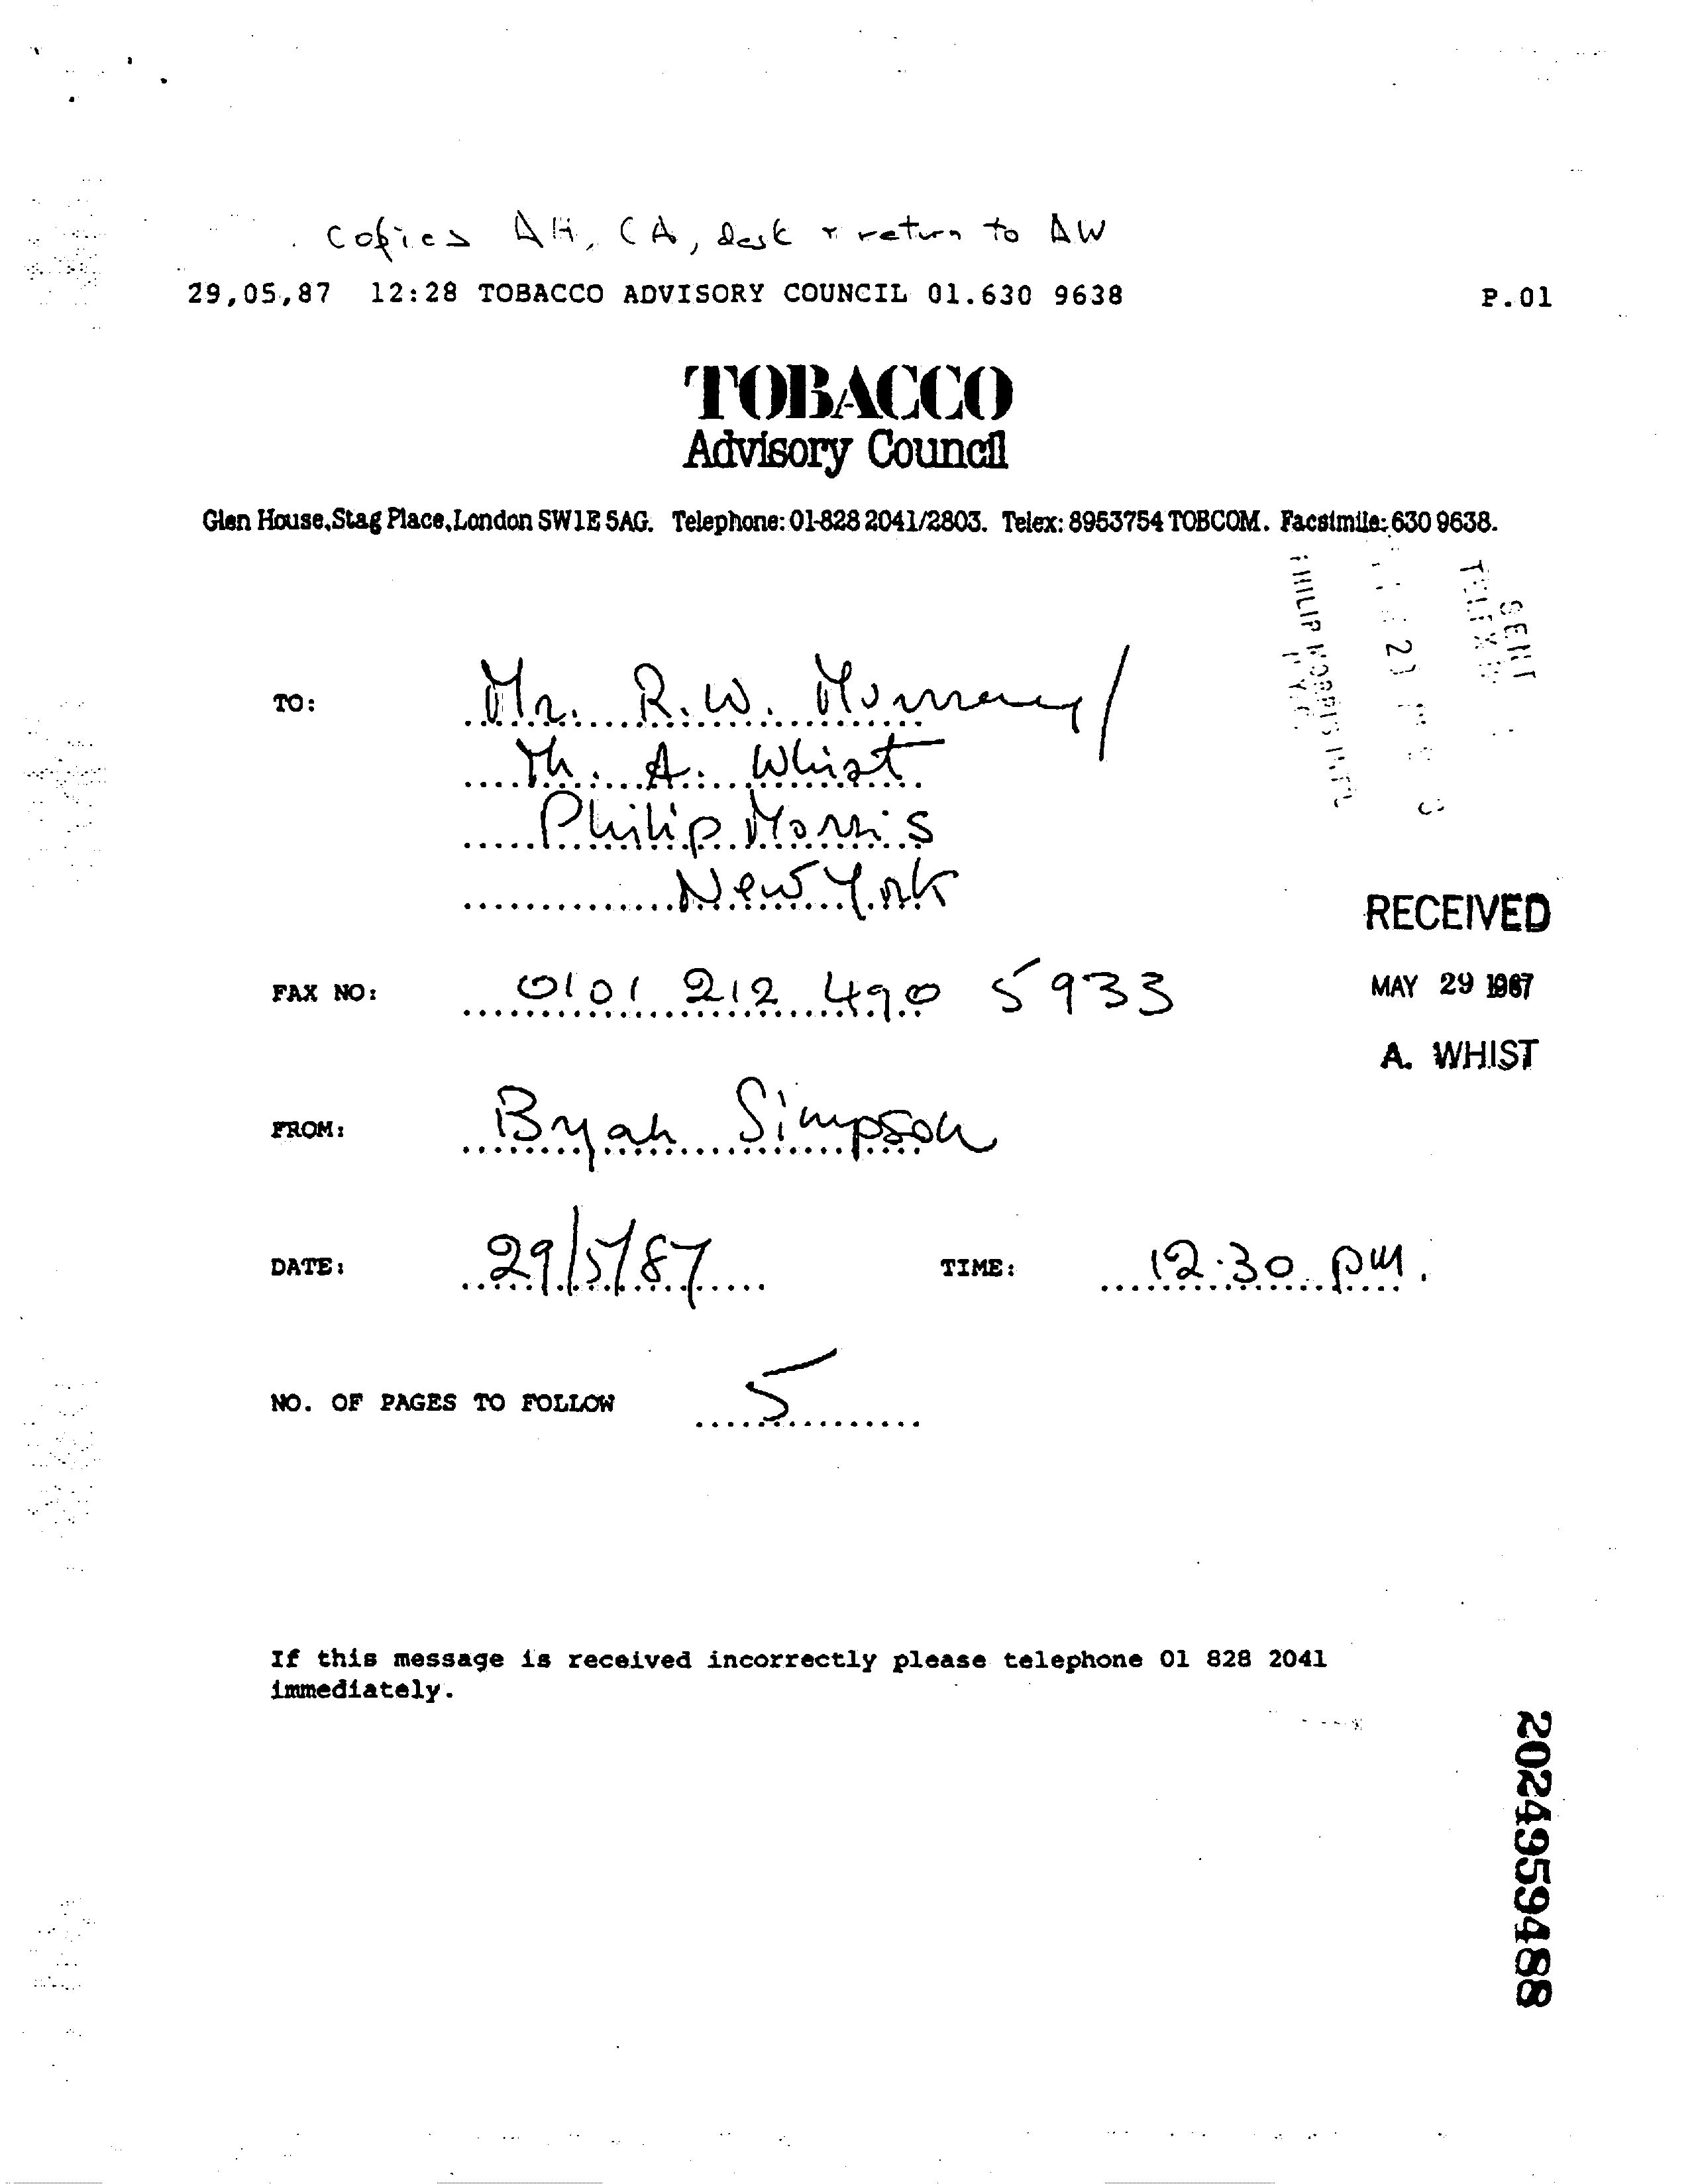 Copies AH, CA, desk & return to AW
29,05,87 12:28 TOBACCO ADVISORY COUNCIL 01.630 9638 P.01
TOBACCO
Advisory Council
Glen House,Stag Place,London SW1E 5AG. Telephone: 01-828 2041/2803. Telex: 8953754 TOBCOM. Facsimile: 630 9638.
SENT
PHILIP MORRIS
TO: Mr. R.W. Murray/
Mr. A. Whist
Philip Morris
New York
RECEIVED
FAX NO: 0101 212 490 5933
MAY 29 1987
A. WHIST
FROM: Bryan Simpson
DATE: 29/5/87 TIME: 12.30 pm.
NO. OF PAGES TO FOLLOW 5
If this message is received incorrectly please telephone 01 828 2041
immediately.
2024959488